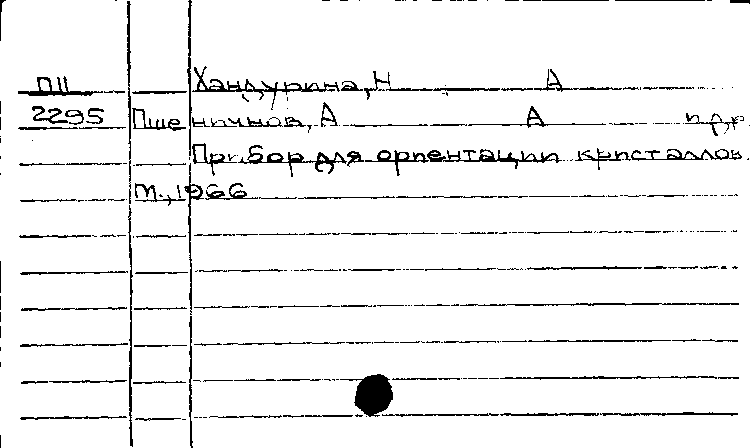 П11 Хандурина, Н А
2295 Пшеничнов, А А и др.
Прибор для ориентации кристаллов
М., 1966